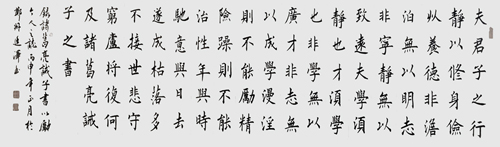 夫君子之行
靜以修身儉
以養德非澹
泊無以明志
非寧靜無以
致遠夫學須
靜也才須學
也非學無以
廣才非志無
以成學漫淫
則不能勵精
險躁則不能
治性年與時
馳意與日去
遂成枯落多
不接世悲守
窮廬將復何
及諸葛亮誡
子之書
錄諸葛亮誡子書以勵
人之誌丙申年正月於
鄭州